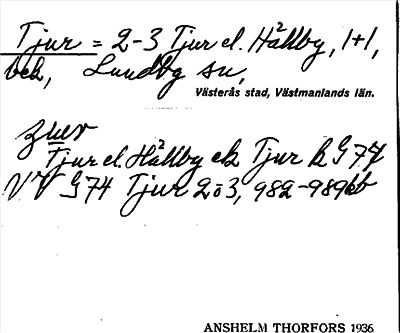 Tjur = 2-3 Tjur el. Hällby, 1+1,
bek, Lundby sn,
Västerås stad, Västmanlands län.
Tjur el. Hällby ek Tjur k G 74
VV G74 Tjur 2o3, 982-989 bb
ANSHELM THORFORS 1936